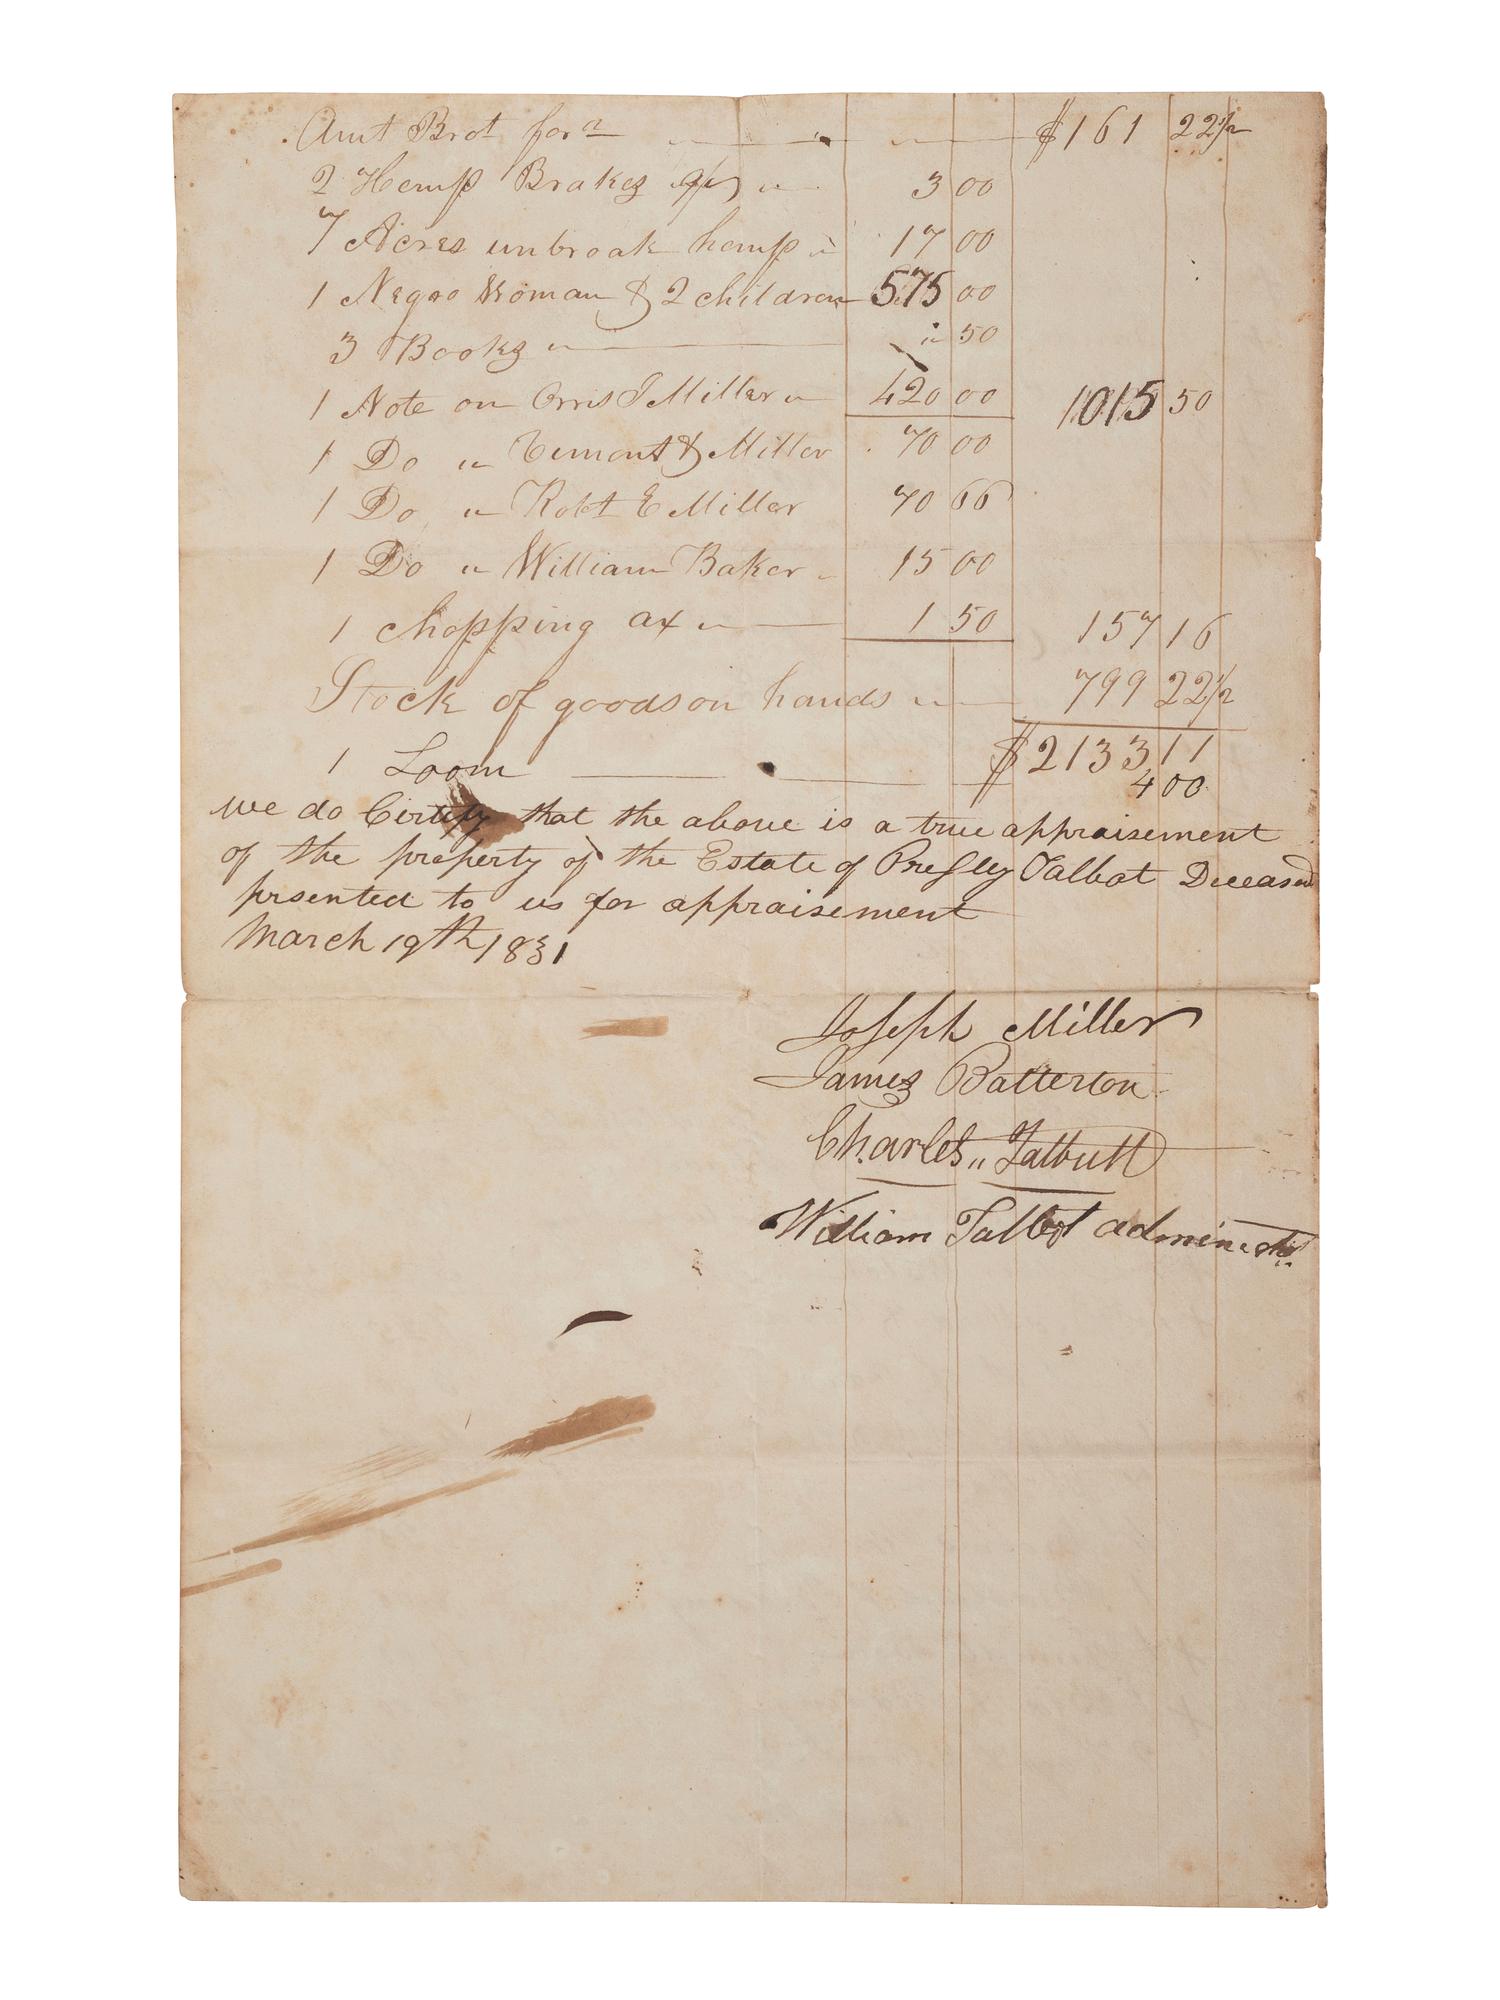 Amt Brot for^d $161 22 1/2
2 Hemp Brakes 3 00
7 Acres unbroak hemp 17 00
1 Negro Woman & 2 children 575 00
3 Books 50
1 Note on Orris J Miller 420 00 1015 50
1 Do " & Miller 70 00
1 Do " Robt E Miller 70 66
1 Do " William Baker 15 00
1 chopping ax 1 50 157 16
Stock of goods on hands 799 22 1/2
$2133 11
1 Loom 4 00
we do Certify that the above is a true appraisement
of the property of the Estate of Presley Talbot Deceased
prsented to us for appraisement
March 19th 1831
Joseph Miller
James Batterton
Charles " Talbutt
William Talbot